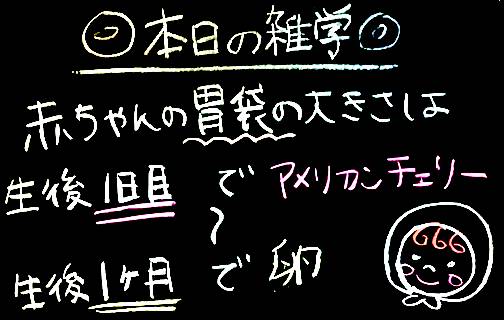 本日の雑学
赤ちゃんの胃袋の大きさは
生後1日目 で アメリカンチェリー
〜
生後1ヶ月 で 卵